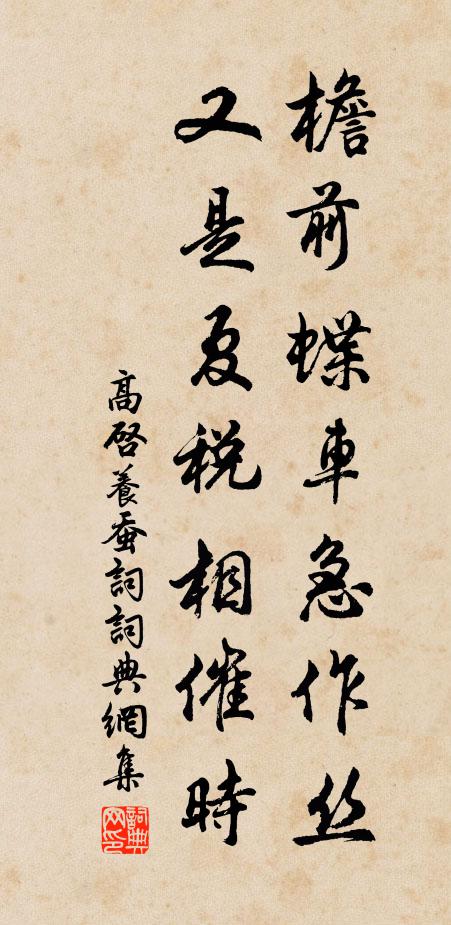 檐前蝶車急作丝
又是夏税相催時
高啓養蚕詞詞典網集
詞典网印